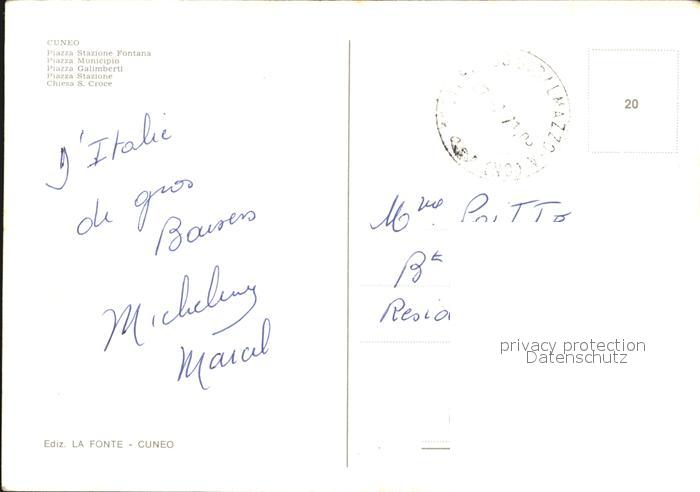 CUNEO
Piazza Stazione Fontana
Piazza Municipio
Piazza Galimberti
Piazza Stazione
Chiesa S. Croce
D'Italie
de gros
Baisers
Micheline
Marcel
Ediz. LA FONTE - CUNEO
20
Mme
Bt
Resid
privacy protection
Datenschutz